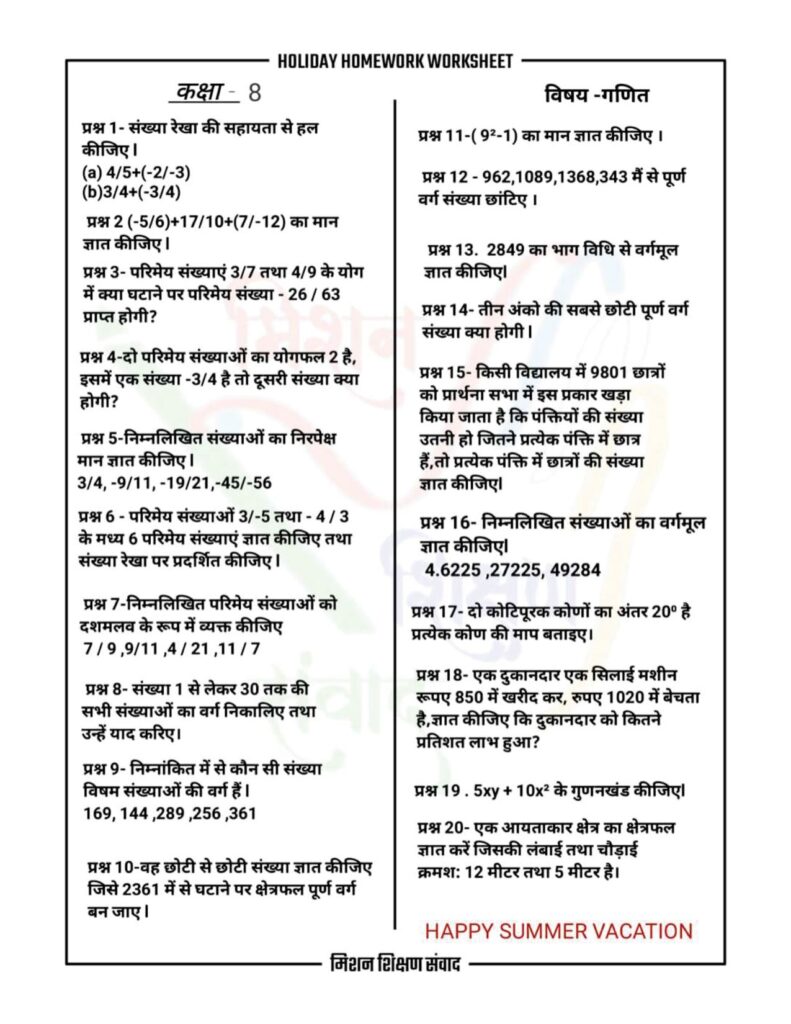 HOLIDAY HOMEWORK WORKSHEET
कक्षा - 8
प्रश्न 1- संख्या रेखा की सहायता से हल
कीजिए l
(a) 4/5+(-2/-3)
(b)3/4+(-3/4)
प्रश्न 2 (-5/6)+17/10+(7/-12) का मान
ज्ञात कीजिए l
प्रश्न 3- परिमेय संख्याएं 3/7 तथा 4/9 के योग
में क्या घटाने पर परिमेय संख्या - 26 / 63
प्राप्त होगी?
प्रश्न 4-दो परिमेय संख्याओं का योगफल 2 है,
इसमें एक संख्या -3/4 है तो दूसरी संख्या क्या
होगी?
प्रश्न 5-निम्नलिखित संख्याओं का निरपेक्ष
मान ज्ञात कीजिए l
3/4, -9/11, -19/21,-45/-56
प्रश्न 6 - परिमेय संख्याओं 3/-5 तथा - 4 / 3
के मध्य 6 परिमेय संख्याएं ज्ञात कीजिए तथा
संख्या रेखा पर प्रदर्शित कीजिए l
प्रश्न 7-निम्नलिखित परिमेय संख्याओं को
दशमलव के रूप में व्यक्त कीजिए
7 / 9 ,9/11 ,4 / 21 ,11 / 7
प्रश्न 8- संख्या 1 से लेकर 30 तक की
सभी संख्याओं का वर्ग निकालिए तथा
उन्हें याद करिए।
प्रश्न 9- निम्नांकित में से कौन सी संख्या
विषम संख्याओं की वर्ग हैं l
169, 144 ,289 ,256 ,361
प्रश्न 10-वह छोटी से छोटी संख्या ज्ञात कीजिए
जिसे 2361 में से घटाने पर क्षेत्रफल पूर्ण वर्ग
बन जाए l
विषय -गणित
प्रश्न 11-( 9²-1) का मान ज्ञात कीजिए ।
प्रश्न 12 - 962,1089,1368,343 मैं से पूर्ण
वर्ग संख्या छांटिए ।
प्रश्न 13. 2849 का भाग विधि से वर्गमूल
ज्ञात कीजिएl
प्रश्न 14- तीन अंको की सबसे छोटी पूर्ण वर्ग
संख्या क्या होगी l
प्रश्न 15- किसी विद्यालय में 9801 छात्रों
को प्रार्थना सभा में इस प्रकार खड़ा
किया जाता है कि पंक्तियों की संख्या
उतनी हो जितने प्रत्येक पंक्ति में छात्र
हैं,तो प्रत्येक पंक्ति में छात्रों की संख्या
ज्ञात कीजिएl
प्रश्न 16- निम्नलिखित संख्याओं का वर्गमूल
ज्ञात कीजिएl
4.6225 ,27225, 49284
प्रश्न 17- दो कोटिपूरक कोणों का अंतर 20⁰ है
प्रत्येक कोण की माप बताइए।
प्रश्न 18- एक दुकानदार एक सिलाई मशीन
रूपए 850 में खरीद कर, रुपए 1020 में बेचता
है,ज्ञात कीजिए कि दुकानदार को कितने
प्रतिशत लाभ हुआ?
प्रश्न 19 . 5xy + 10x² के गुणनखंड कीजिएl
प्रश्न 20- एक आयताकार क्षेत्र का क्षेत्रफल
ज्ञात करें जिसकी लंबाई तथा चौड़ाई
क्रमश: 12 मीटर तथा 5 मीटर है।
HAPPY SUMMER VACATION
मिशन शिक्षण संवाद
मिशन
शिक्षण
संवाद